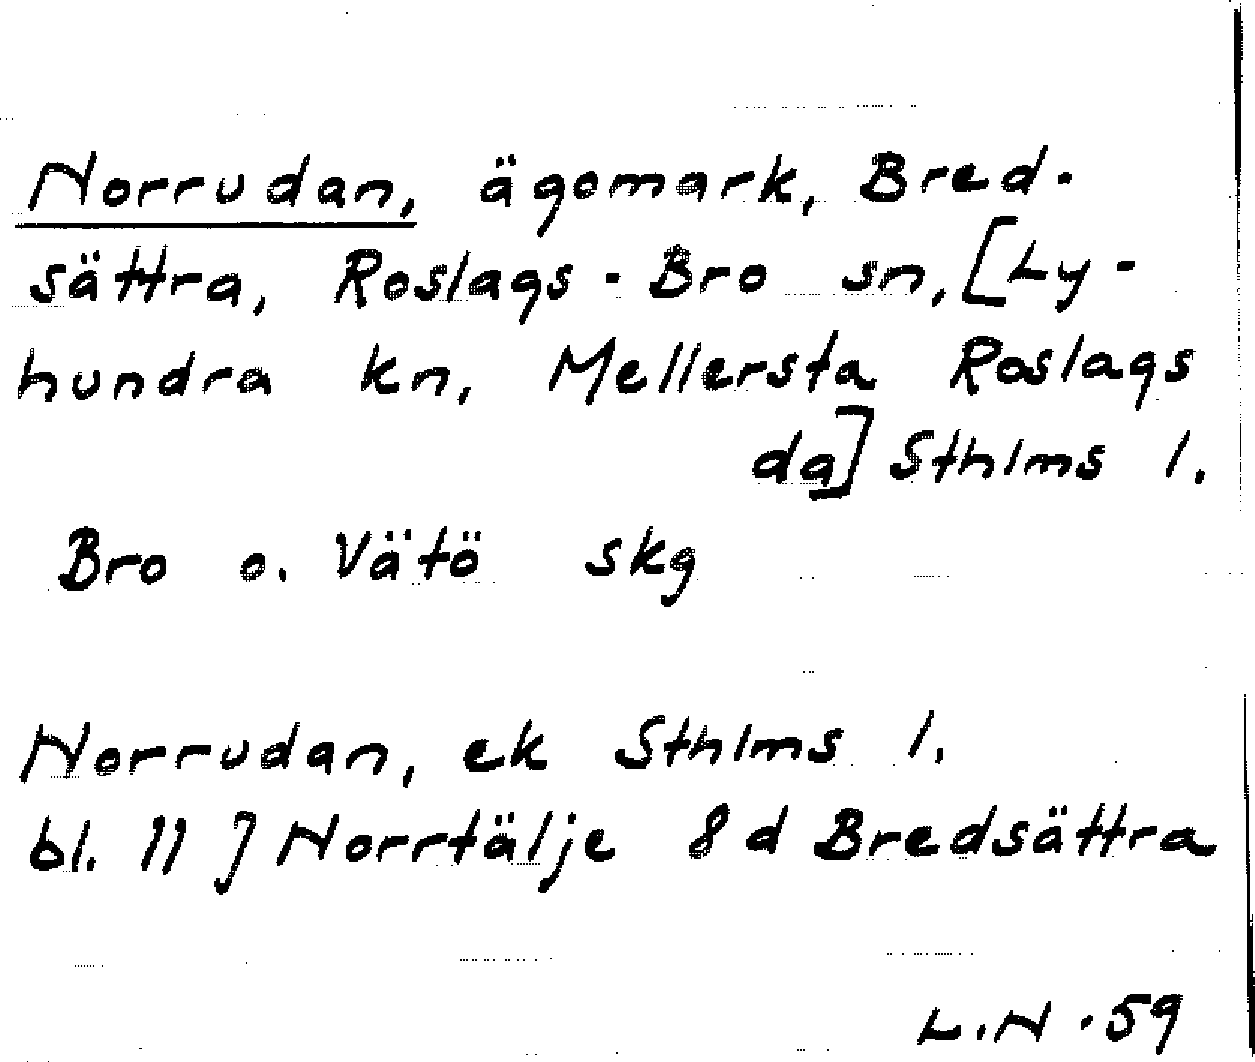 Norrudan, ägomark, Bred-
sättra, Roslags-Bro sn, [Ly-
hundra kn, Mellersta Roslags
da] Sthlms l.
Bro o. Vätö skg
Norrudan, ek Sthlms l.
bl. 11 J Norrtälje 8 d Bredsättra
L.N.59